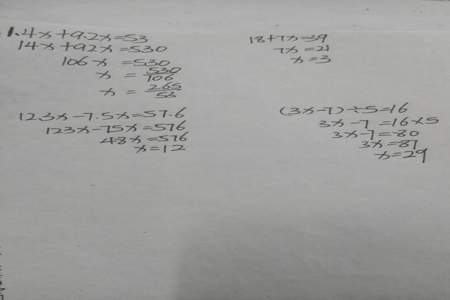 1.4x+9.2x=53
14x+92x=530
106x=530
x=530/106
x=265/53
18+7x=39
7x=21
x=3
12.3x-7.5x=57.6
123x-75x=576
48x=576
x=12
(3x-7)÷5=16
3x-7=16×5
3x-7=80
3x=87
x=29